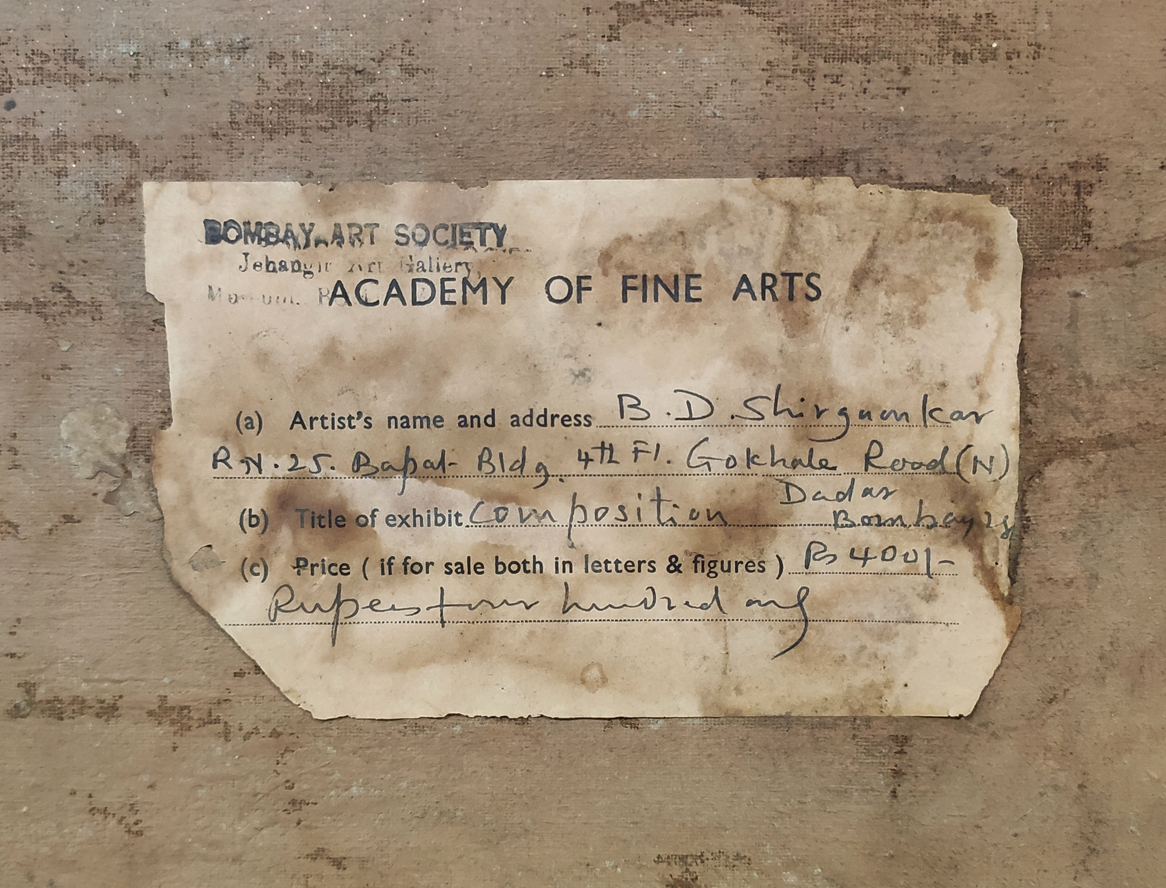 BOMBAY ART SOCIETY
Jehangir Art Gallery,
ACADEMY OF FINE ARTS
(a) Artist's name and address B.D. Shirgaonkar
R.N. 25. Bapat Bldg. 4th Fl. Gokhale Road (N)
Dadar
(b) Title of exhibit Composition Bombay 28
(c) Price ( if for sale both in letters & figures ) Rs 400/-
Rupees four hundred only